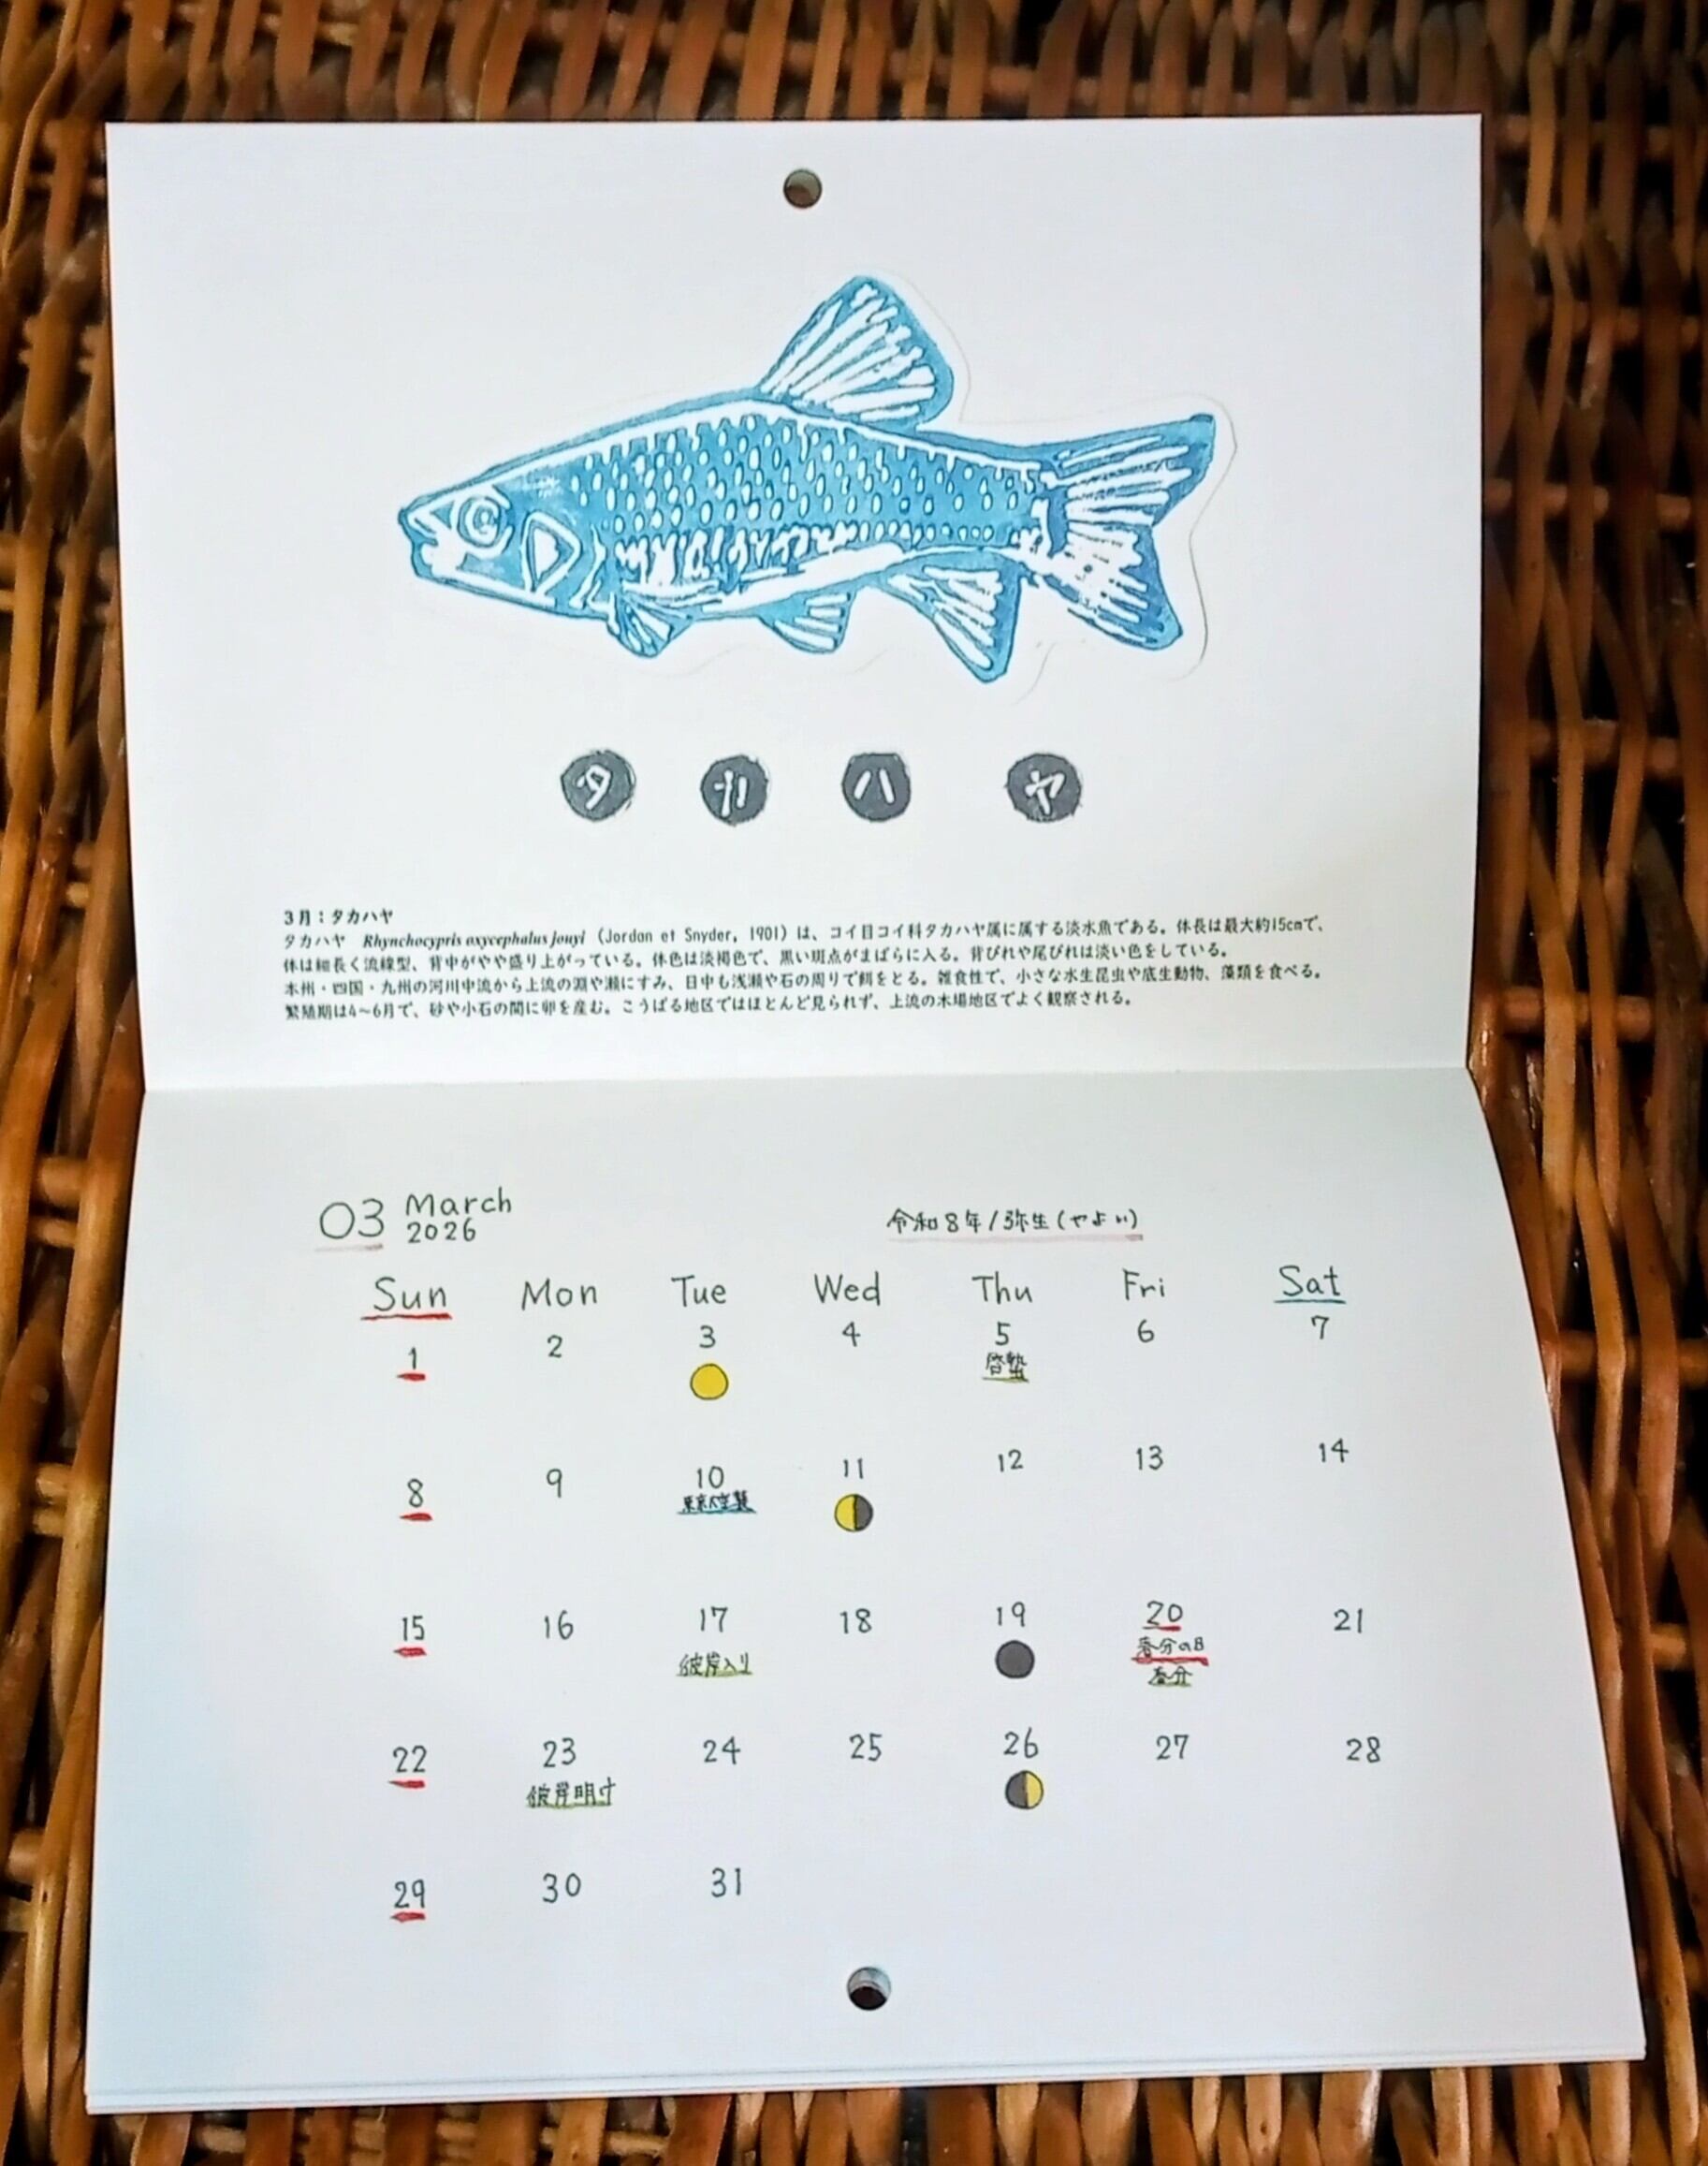 タカハヤ
3月：タカハヤ
タカハヤ Rhynchocypris oxycephalus jouyi（Jordan et Snyder, 1901）は、コイ目コイ科タカハヤ属に属する淡水魚である。体長は最大約15cmで、
体は細長く流線型、背中がやや盛り上がっている。体色は淡褐色で、黒い斑点がまばらに入る。背びれや尾びれは淡い色をしている。
本州・四国・九州の河川中流から上流の淵や瀬にすみ、日中も浅瀬や石の周りで餌をとる。雑食性で、小さな水生昆虫や底生動物、藻類を食べる。
繁殖期は4〜6月で、砂や小石の間に卵を産む。こうばる地区ではほとんど見られず、上流の木場地区でよく観察される。
03 March
2026
令和8年/弥生(やよい)
Sun Mon Tue Wed Thu Fri Sat
1 2 3 4 5 6 7
啓蟄
8 9 10 11 12 13 14
東京大空襲
15 16 17 18 19 20 21
彼岸入り 春分の日
春分
22 23 24 25 26 27 28
彼岸明け
29 30 31